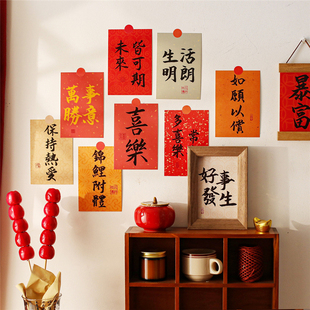 未來
皆可期
生活
明朗
如願以償
暴富
萬事
勝意
喜樂
多喜樂
常
保持熱愛
錦鯉附體
好事
發生